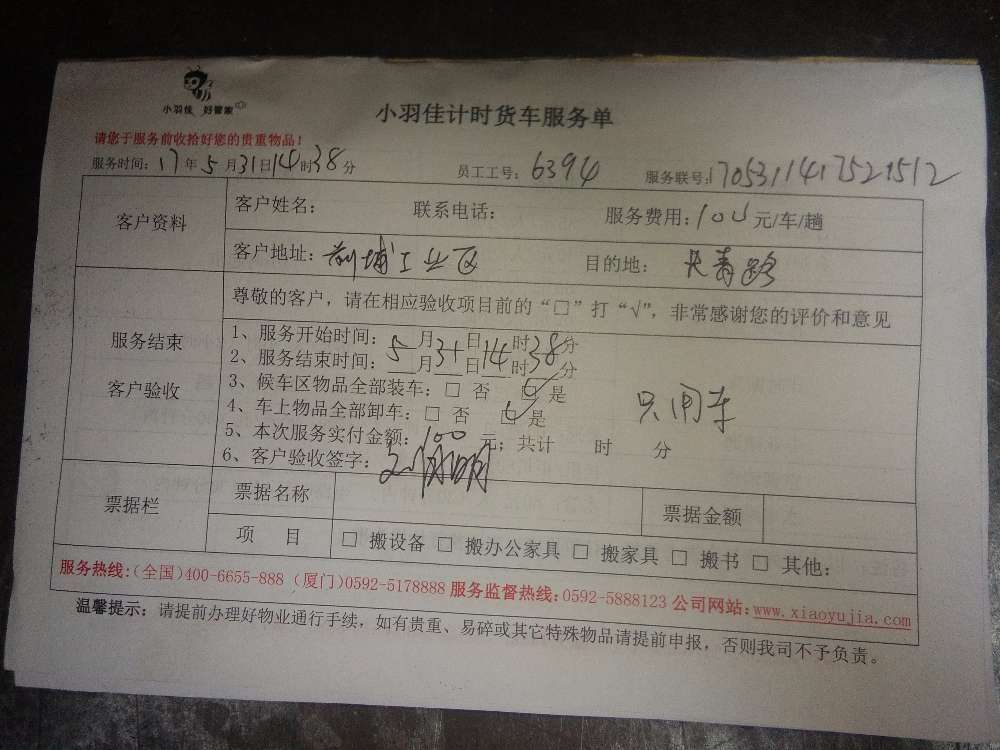 小羽佳 好管家
小羽佳计时货车服务单
请您于服务前收拾好您的贵重物品！
服务时间：17年5月31日14时38分 员工工号：6394 服务联号：1705311417521512
客户资料
客户姓名： 联系电话： 服务费用：100元/车/趟
客户地址：前埔工业区 目的地：长青路
服务结束
客户验收
尊敬的客户，请在相应验收项目前的“□”打“√”，非常感谢您的评价和意见
1、服务开始时间： 月 日 时 分
2、服务结束时间：5月31日14时38分
3、候车区物品全部装车：□ 否 ☑是
4、车上物品全部卸车：□ 否 ☑是
只用车
5、本次服务实付金额：100元；共计 时 分
6、客户验收签字：
票据栏
票据名称 票据金额
项 目 □ 搬设备 □ 搬办公家具 □ 搬家具 □ 搬书 □ 其他：
服务热线：(全国)400-6655-888 (厦门)0592-5178888 服务监督热线：0592-5888123 公司网站：www.xiaoyujia.com
温馨提示：请提前办理好物业通行手续，如有贵重、易碎或其它特殊物品请提前申报，否则我司不予负责。